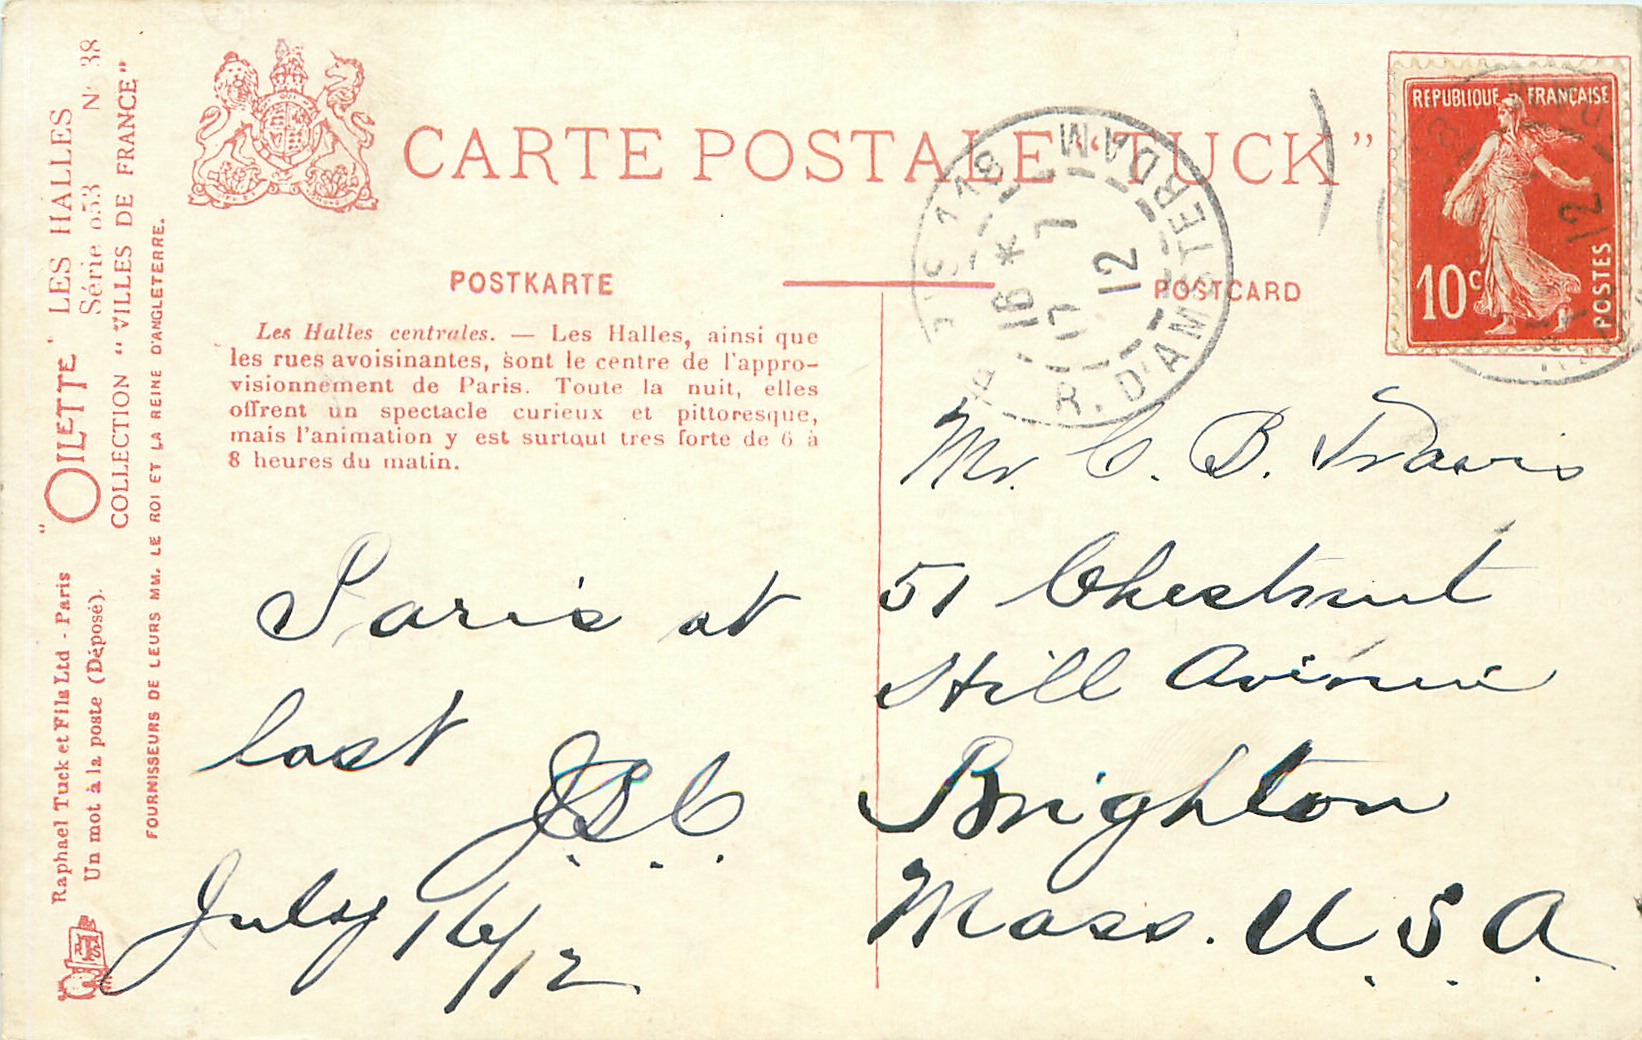 CARTE POSTALE “TUCK”
POSTKARTE
POSTCARD
Les Halles centrales. — Les Halles, ainsi que
les rues avoisinantes, sont le centre de l'appro-
visionnement de Paris. Toute la nuit, elles
offrent un spectacle curieux et pittoresque,
mais l'animation y est surtout tres forte de 6 à
8 heures du matin.
Paris at
last
J. S. C
July 16/12.
Mr. C. B. Travis
51 Chestnut
Hill Avenue
Brighton
Mass. U. S. A.
REPUBLIQUE FRANÇAISE
10c
POSTES
118
R. D'AMSTERDAM
16 * 7
17 12
12
"OILETTE" LES HALLES
Série N° 38
COLLECTION "VILLES DE FRANCE"
FOURNISSEURS DE LEURS MM. LE ROI ET LA REINE D'ANGLETERRE.
Raphael Tuck et Fils Ltd - Paris
Un mot à la poste (Déposé).